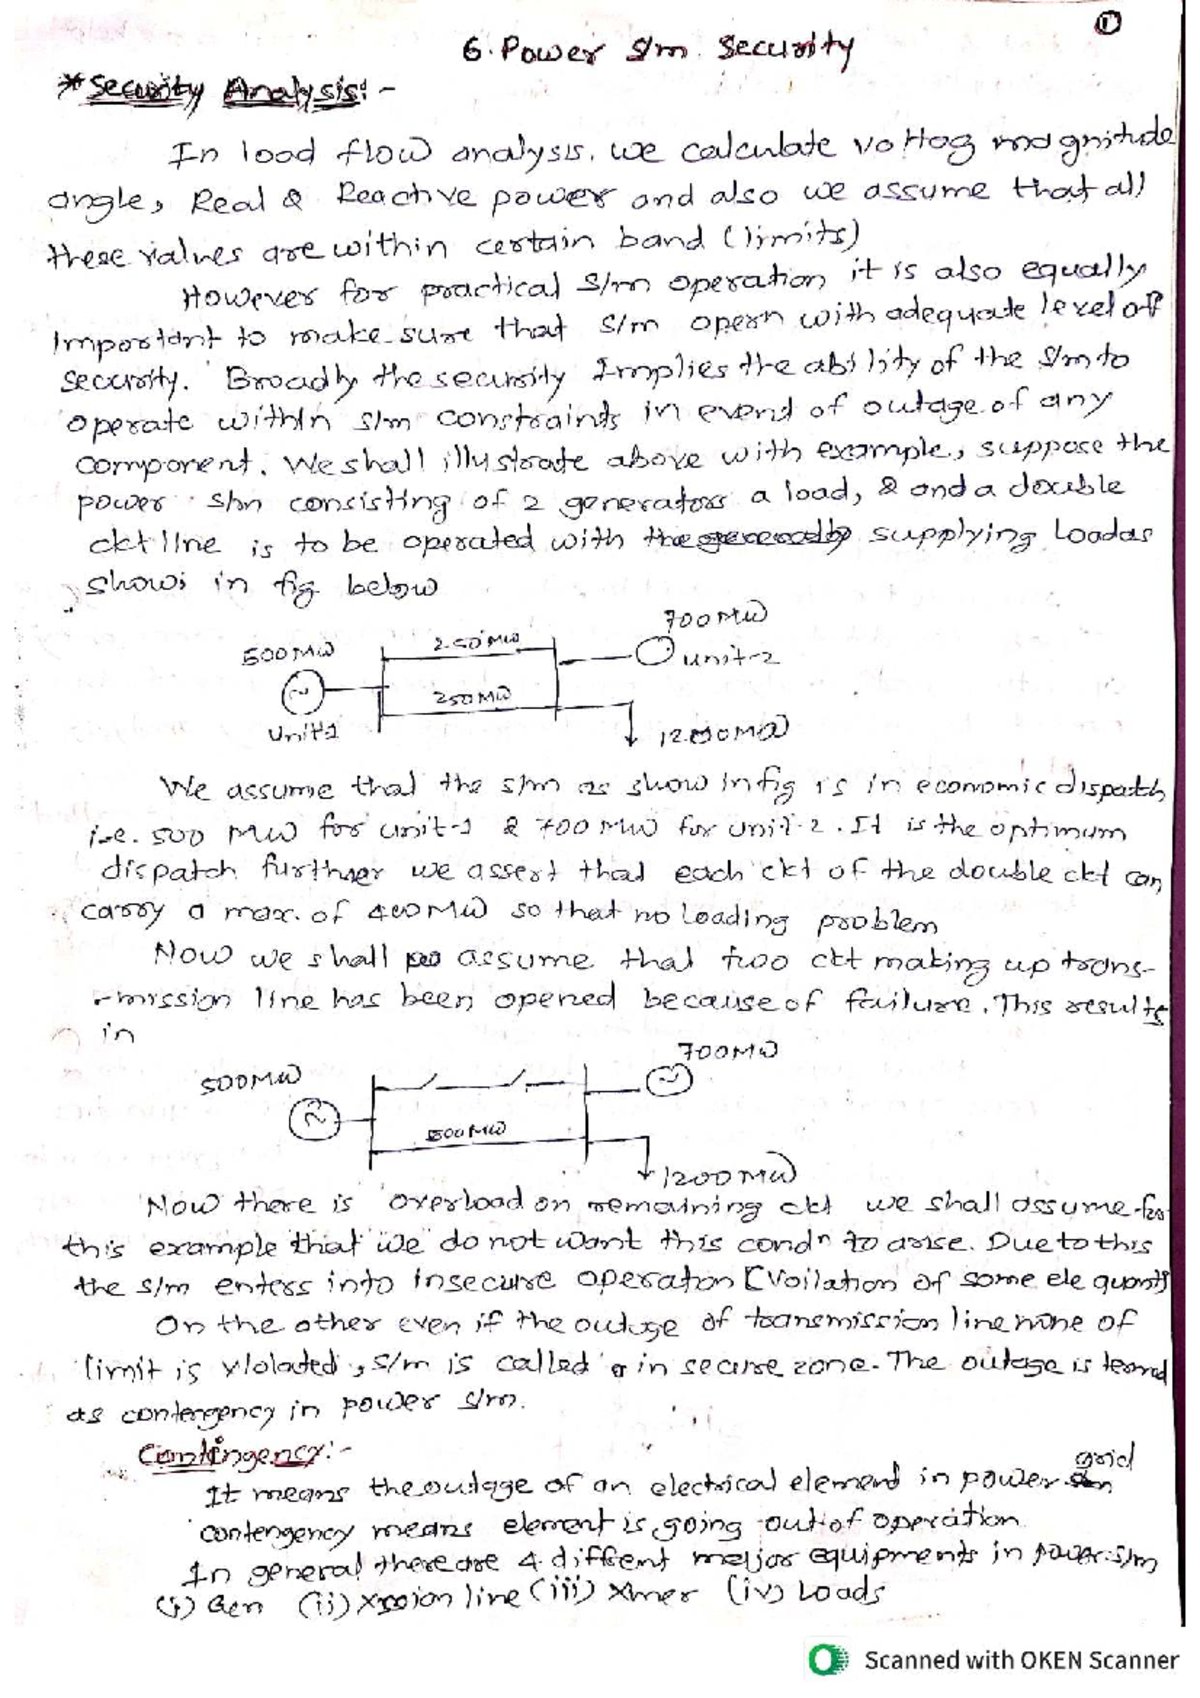 ①
6. Power s/m. Security
* Security Analysis: -
In load flow analysis. we calculate voltag magnitude
angle, Real & Reactive power and also we assume that all
these values are within certain band (limits)
However for practical s/m operation it is also equally
Important to make sure that s/m opern with adequate level off
security. Broadly the security Implies the ability of the s/m to
operate within s/m constraints in evend of outage of any
component. We shall illustrate above with example, suppose the
power s/m consisting of 2 generators a load, & and a double
ckt line is to be operated with the generally supplying Load as
show in fig below
700MW
500MW
250MW
unit-2
250MW
Unit1
1200MW
We assume that the s/m as show in fig is in economic dispatch
i.e. 500 MW for unit-1 & 700 MW for unit-2. It is the optimum
dispatch further we assert that each ckt of the double ckt can
carry a max. of 400MW so that no loading problem
Now we shall assume that two ckt making up trans-
-mission line has been opened because of failure. This results
in
700MW
500MW
500MW
1200MW
Now there is overload on remaining ckt we shall assume for
this example that we do not want this condn to arise. Due to this
the s/m enters into insecure operation [Voilation of some ele quanti
On the other even if the outage of transmission line none of
limit is violated, s/m is called in secure zone. The outage is termd
as contergency in power s/m.
Contingency:-
grid
It means the outage of an electrical element in power s/m
contengency means element is going out of operation
In general there are 4 diffent mejor equipments in power s/m
(i) Gen (ii) Xssion line (iii) Xmer (iv) Loads
Scanned with OKEN Scanner